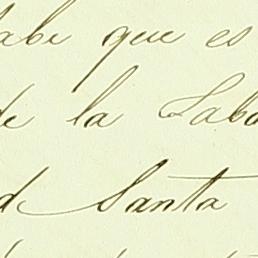 sabe que es
de la Saba
d Santa